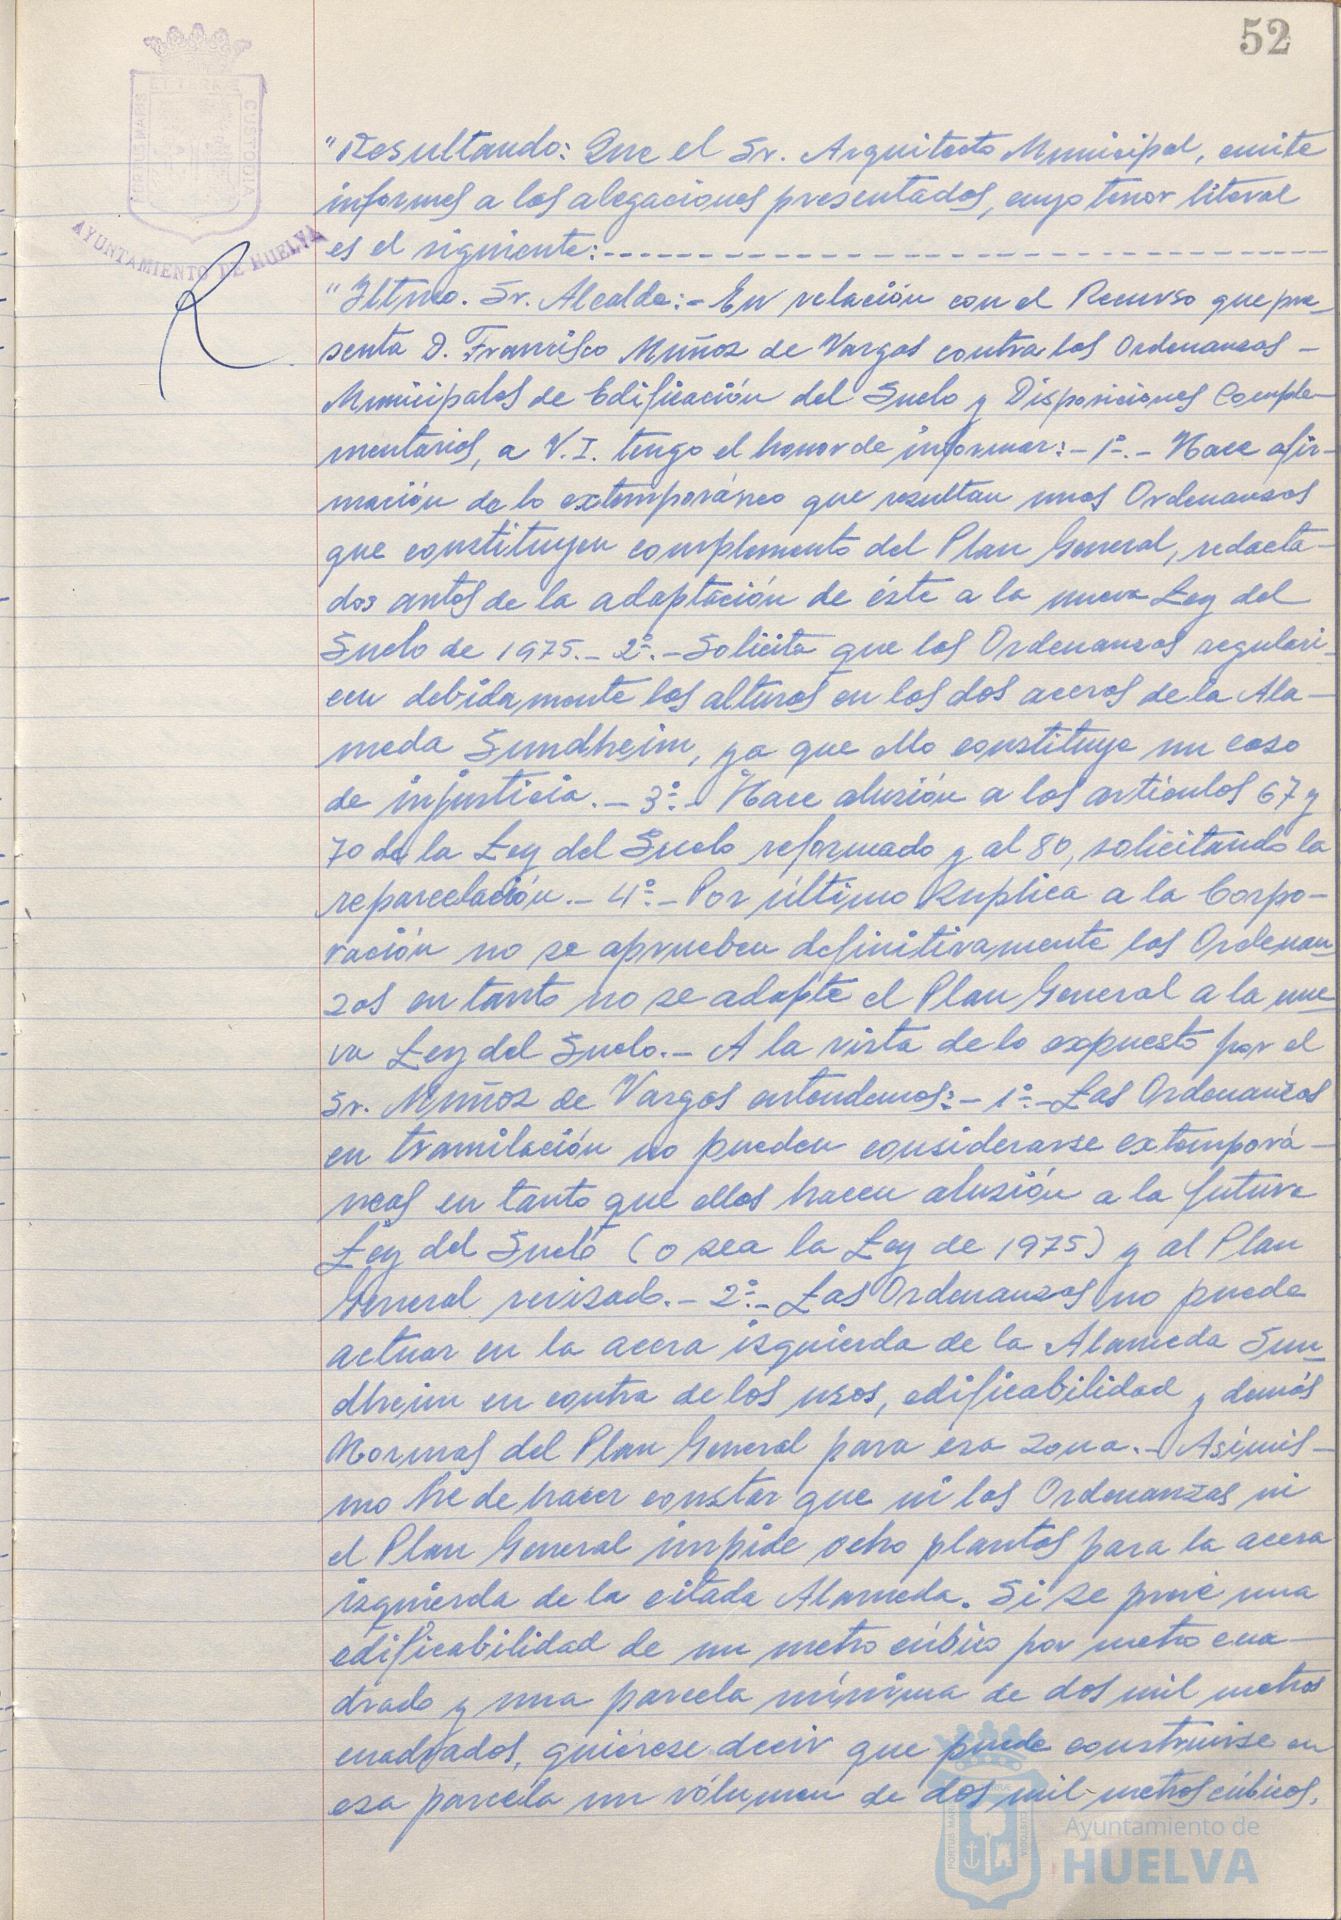 52
PORTUS MARIS ET TERRAE CUSTODIA
AYUNTAMIENTO DE HUELVA
"Resultando: Que el Sr. Arquitecto Municipal, emite
informes a las alegaciones presentadas, cuyo tenor literal
es el siguiente:-----------------------------
"Iltmo. Sr. Alcalde:- En relación con el Recurso que pre_
senta D. Francisco Muñoz de Vargas contra las Ordenanzas -
Municipales de Edificación del Suelo y Disposiciones Comple-
mentarias, a V.I. tengo el honor de informar:- 1º.- Hace afir-
mación de lo extemporáneo que resultan unas Ordenanzas
que constituyen complemento del Plan General, redacta-
das antes de la adaptación de éste a la nueva Ley del
Suelo de 1975.- 2º.- Solicita que las Ordenanzas regulari_
cen debidamente las alturas en las dos aceras de la Ala-
meda Sundheim, ya que ello constituye un caso
de injusticia.- 3º.- Hace alusión a los artículos 67 y
70 de la Ley del Suelo reformado y al 80, solicitando la
reparcelación.- 4º.- Por último suplica a la Corpo-
ración no se aprueben definitivamente las Ordenan_
zas en tanto no se adapte el Plan General a la nue
va Ley del Suelo.- A la vista de lo expuesto por el
Sr. Muñoz de Vargas entendemos:- 1º.- Las Ordenanzas
en tramitación no pueden considerarse extemporá-
neas en tanto que ellas hacen alusión a la futura
Ley del Suelo (o sea la Ley de 1975) y al Plan
General revisado.- 2º.- Las Ordenanzas no puede
actuar en la acera izquierda de la Alameda Sun
dheim en contra de los usos, edificabilidad y demás
Normas del Plan General para esa zona.- Asímis-
mo he de hacer constar que ni las Ordenanzas ni
el Plan General impide ocho plantas para la acera
izquierda de la citada Alameda. Si se preve una
edificabilidad de un metro cúbico por metro cua-
drado y una parcela mínima de dos mil metros
cuadrados, quiérese decir que puede construirse en
esa parcela un vólumen de dos mil metros cúbicos.
Ayuntamiento de
HUELVA